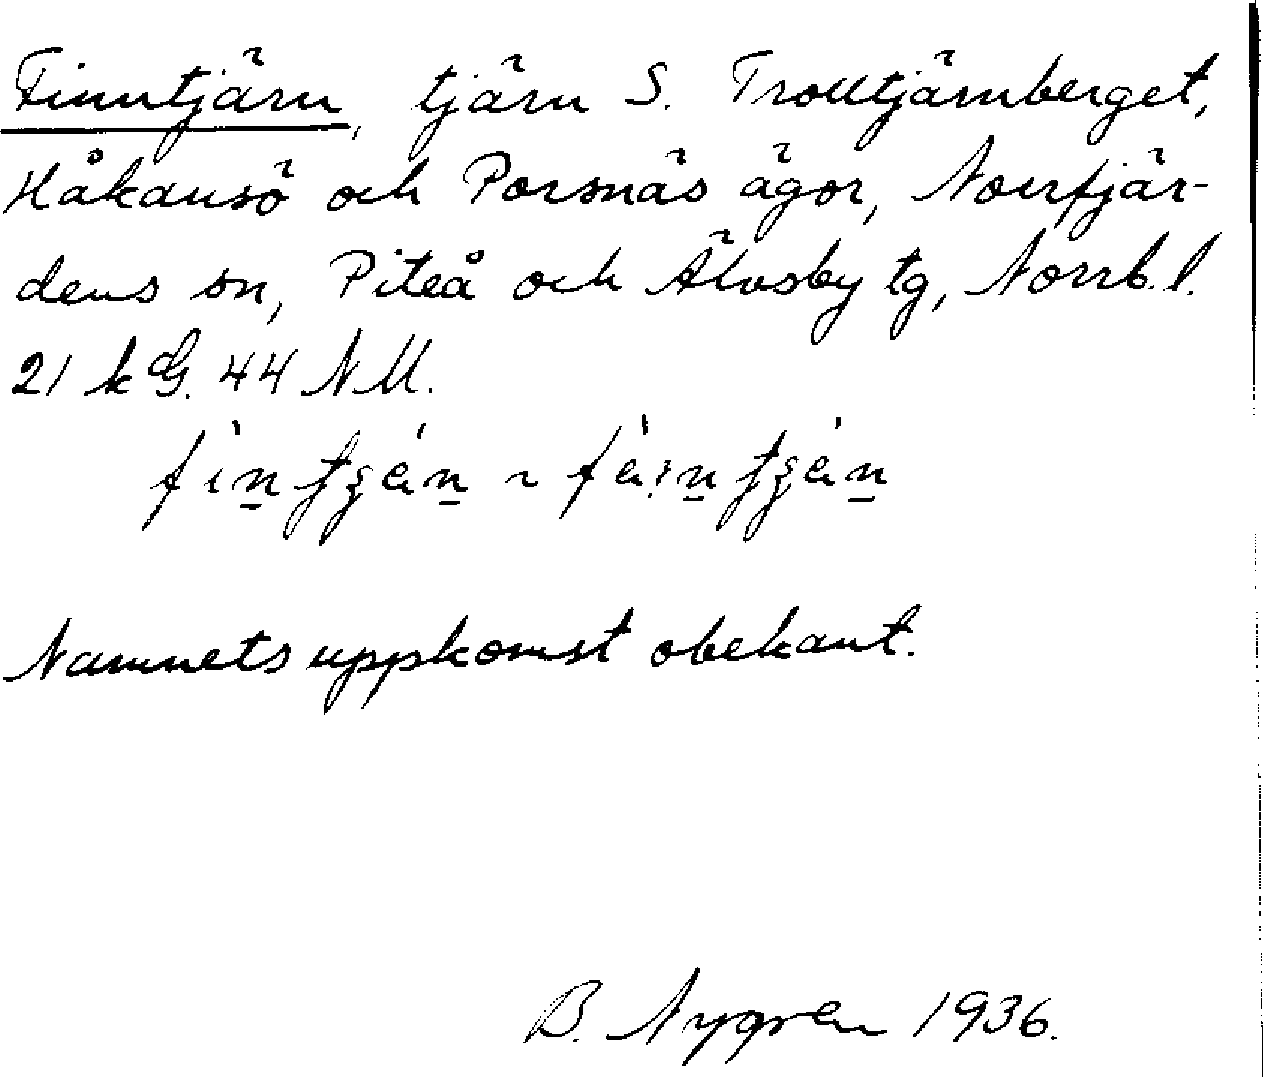 Finntjärn, tjärn S. Trolltjärnberget,
Håkansö och Porsnäs ägor, Norrfjär-
dens sn, Piteå och Älvsby tg, Norrb. l.
21 k G. 44 NM.
Namnets uppkomst obekant.
B. Nygren 1936.